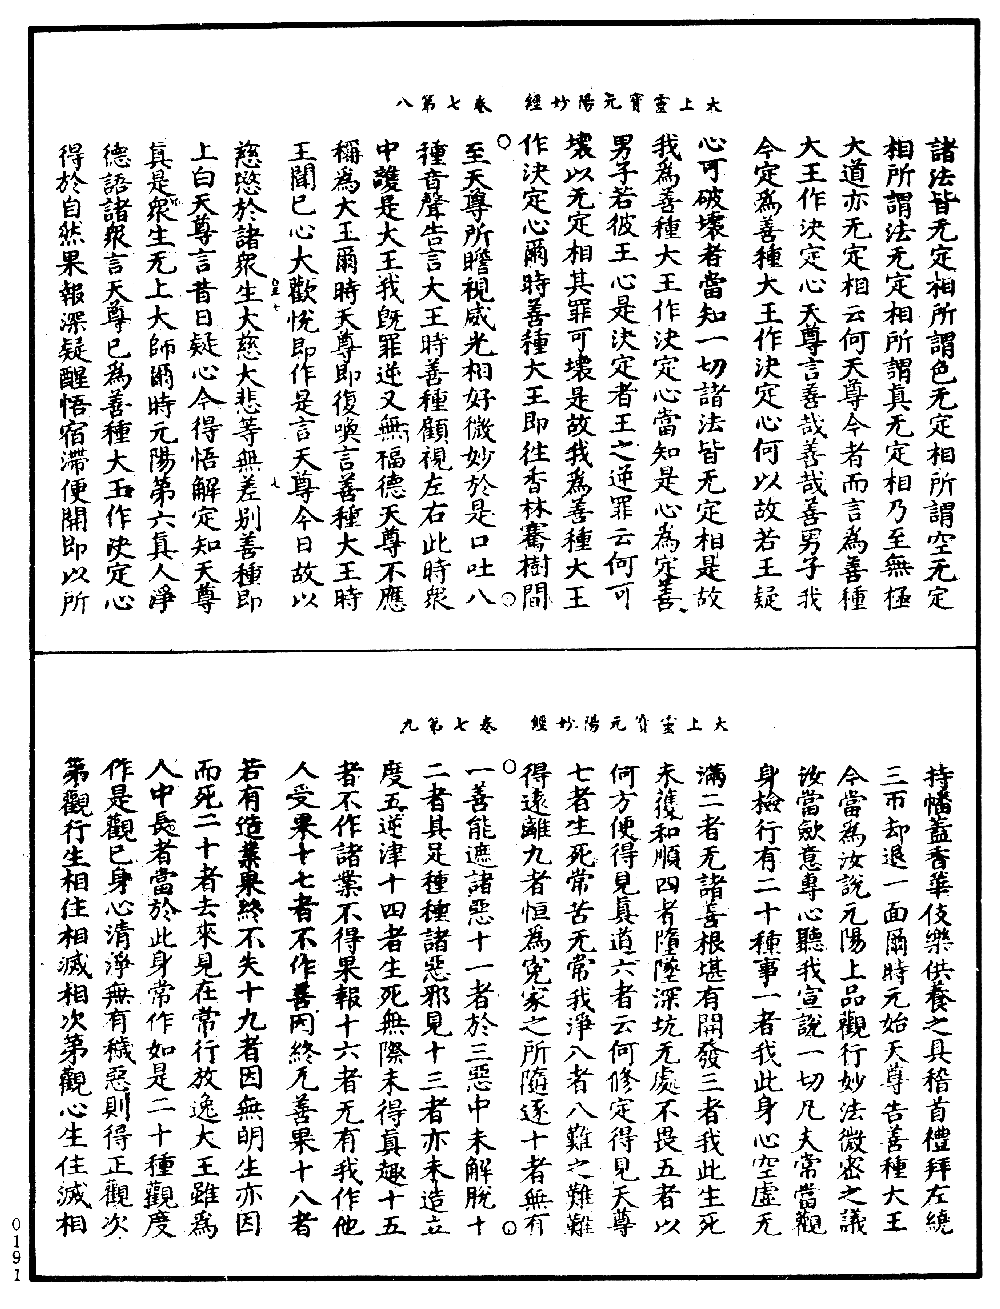 太上靈寶元陽妙經　卷七第八
諸法皆无定相所謂色无定相所謂空无定
相所謂法无定相所謂真无定相乃至無極
大道亦无定相云何天尊今者而言為善種
大王作決定心天尊言善哉善哉善男子我
今定為善種大王作決定心何以故若王疑
心可破壞者當知一切諸法皆无定相是故
我為善種大王作決定心當知是心為定善
男子若彼王心是決定者王之逆罪云何可
壞以无定相其罪可壞是故我為善種大王
作決定心爾時善種大王即往香林騫樹間
至天尊所瞻視威光相好微妙於是口吐八
種音聲告言大王時善種顧視左右此時眾
中誰是大王我既罪逆又無福德天尊不應
稱為大王爾時天尊即復喚言善種大王時
王聞已心大歡悅即作是言天尊今日故以
慈愍於諸眾生大慈大悲等無差別善種即
上白天尊言昔日疑心今得悟解定知天尊
真是眾生无上大師爾時元陽第六真人淨
德語諸眾言天尊已為善種大王作決定心
得於自然果報深疑醒悟宿滯便開即以所
太上靈寶元陽妙經　卷七第九
持幡蓋香華伎樂供養之具稽首禮拜左繞
三帀却退一面爾時元始天尊告善種大王
今當為汝說元陽上品觀行妙法微密之議
汝當歛意專心聽我宣說一切凡夫常當觀
身檢行有二十種事一者我此身心空虛无
滿二者无諸善根堪有開發三者我此生死
未獲和順四者隋墜深坑无處不畏五者以
何方便得見真道六者云何修定得見天尊
七者生死常苦无常我淨八者八難之難難
得遠離九者恒為冤家之所隨逐十者無有
一善能遮諸惡十一者於三惡中未解脫十
二者具足種種諸惡邪見十三者亦未造立
度五逆津十四者生死無際未得真趣十五
者不作諸業不得果報十六者无有我作他
人受果十七者不作善因終无善果十八者
若有造業果終不失十九者因無明生亦因
而死二十者去來見在常行放逸大王雖為
人中長者當於此身常作如是二十種觀度
作是觀已身心清淨無有穢惡則得正觀次
第觀行生相住相滅相次第觀心生住滅相
0191